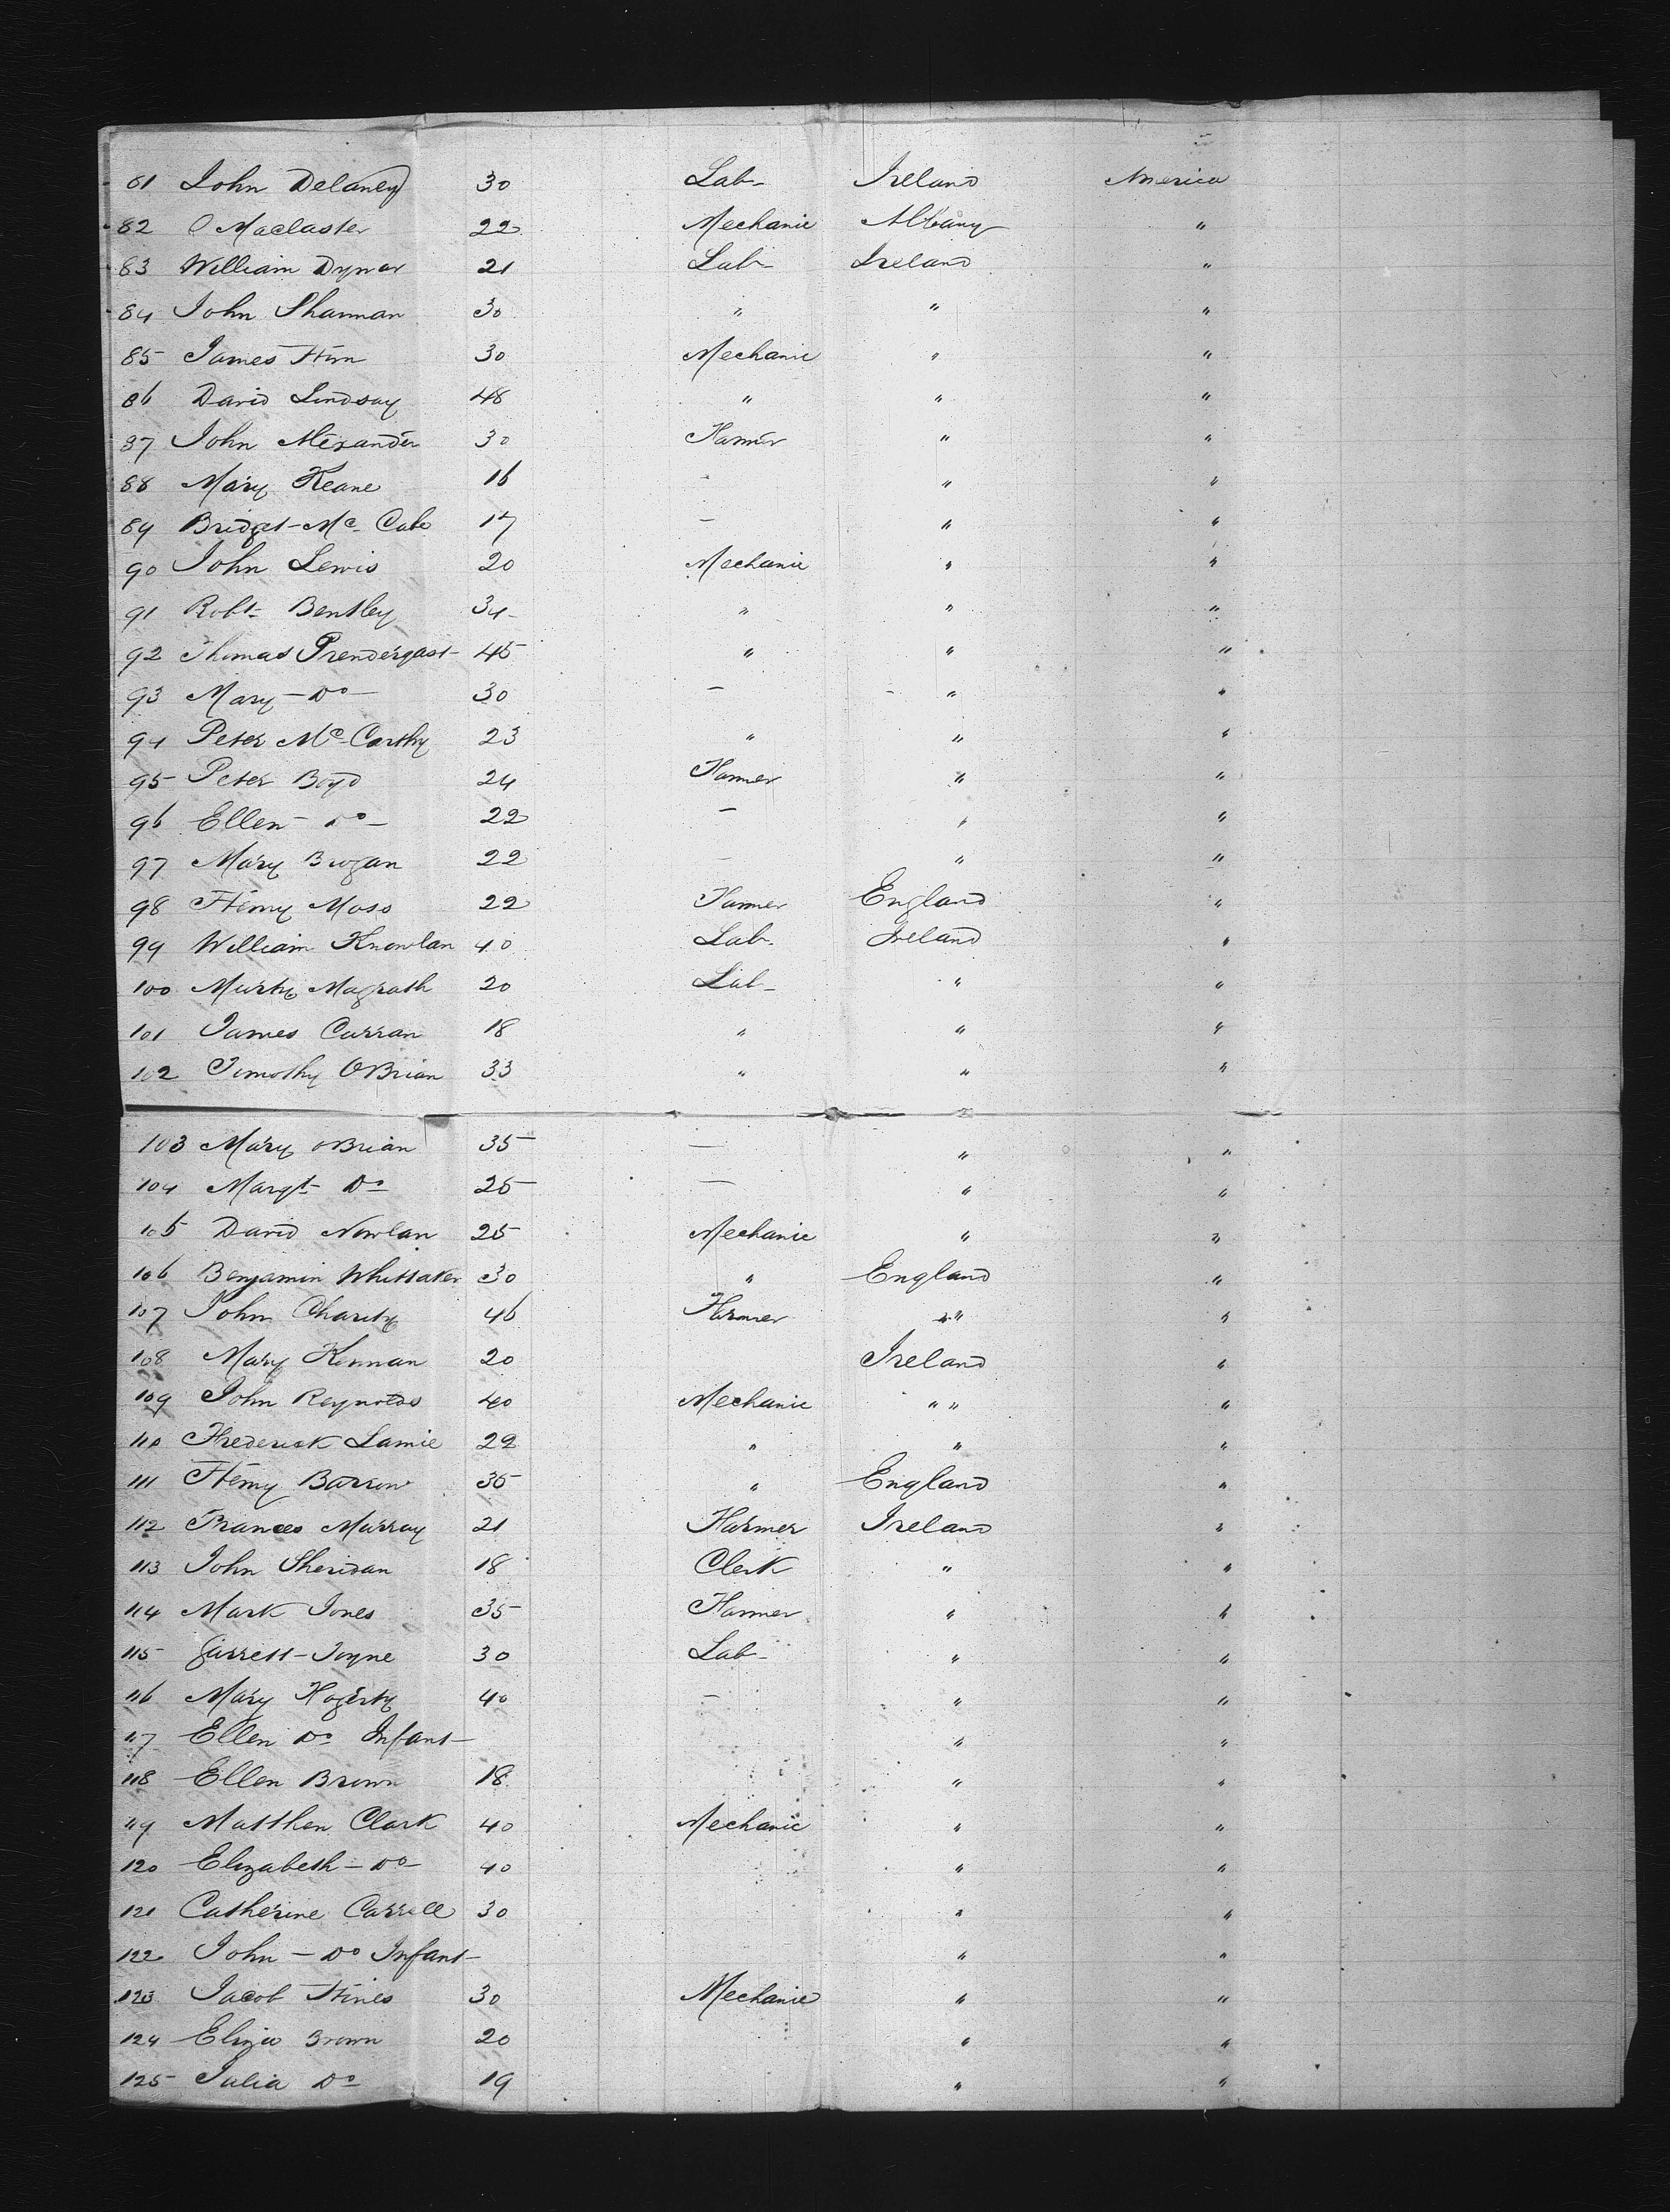 81 John Delaney 30 Lab- Ireland America
82 O Maclaster 22 Mechanic Albany "
83 William Dynar 21 Lab- Ireland "
84 John Shannan 30 " " "
85 James Hirn 30 Mechanic " "
86 David Lindsay 48 " " "
87 John Alexander 30 Farmer " "
88 Mary Keane 16 - " "
89 Bridget McCabe 17 - " "
90 John Lewis 20 Mechanic " "
91 Robt- Bentley 34 " " "
92 Thomas Prendergast 45 " " "
93 Mary - Do - 30 - " "
94 Peter McCarthy 23 " " "
95 Peter Boyd 24 Farmer " "
96 Ellen - Do - 22 - " "
97 Mary Brogan 22 - " "
98 Henry Moss 22 Farmer England "
99 William Knowlan 40 Lab. Ireland "
100 Murty Magrath 20 Lab- " "
101 James Curran 18 " " "
102 Timothy OBrian 33 " " "
103 Mary OBrian 35 - " "
104 Margt- Do 25 - " "
105 David Nowlan 25 Mechanic " "
106 Benjamin Whittaker 30 " England "
107 John Charity 46 Farmer " " "
108 Mary Kernan 20 Ireland "
109 John Reynolds 40 Mechanic " " "
110 Frederick Lamie 22 " " "
111 Henry Barrow 35 " England "
112 Frances Murray 21 Farmer Ireland "
113 John Sheridan 18 Clerk " "
114 Mark Jones 35 Farmer " "
115 Garrett Joyne 30 Lab- " "
116 Mary Hogerty 40 - " "
117 Ellen Do Infant " "
118 Ellen Brown 18 " "
119 Matthew Clark 40 Mechanic " "
120 Elizabeth - Do - 40 " "
121 Catherine Carroll 30 " "
122 John - Do Infant " "
123 Jacob Hines 30 Mechanic " "
124 Eliza Brown 20 " "
125 Julia Do 19 " "